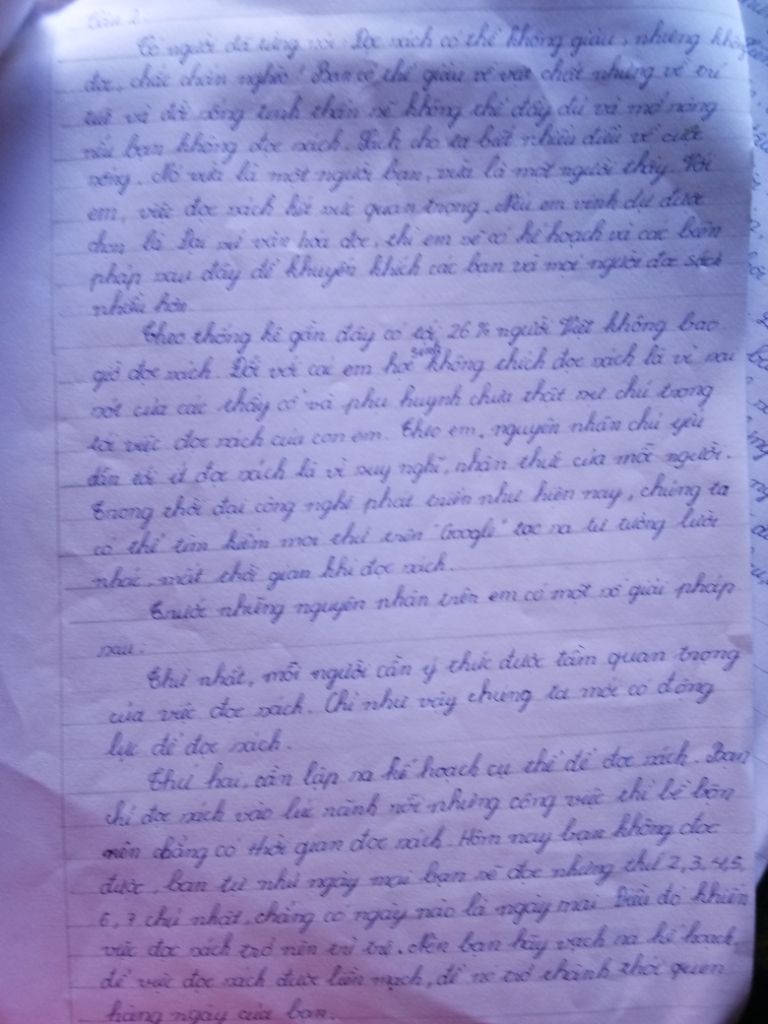 Câu 2.
Có người đã từng nói: Đọc sách có thể không giàu, nhưng không
đọc, chắc chắn nghèo! Bạn có thể giàu về vật chất nhưng về trí
tuệ và đời sống tinh thần sẽ không thể đầy đủ và mở năng
nếu bạn không đọc sách. Sách cho ta biết nhiều điều về cuộc
sống. Nó vừa là một người bạn, vừa là một người thầy. Với
em, việc đọc sách hết sức quan trọng. Nếu em vinh dự được
chọn là Đại sứ văn hóa đọc, thì em sẽ có kế hoạch và các biện
pháp sau đây để khuyến khích các bạn và mọi người đọc sách
nhiều hơn.
Theo thống kê gần đây có tới 26% người Việt không bao
giờ đọc sách. Đối với các em học sinh không thích đọc sách là vì sai
sót của các thầy cô và phụ huynh chưa thật sự chú trọng
tới việc đọc sách của con em. Theo em, nguyên nhân chủ yếu
dẫn tới ít đọc sách là vì suy nghĩ, nhận thức của mỗi người.
Trong thời đại công nghệ phát triển như hiện nay, chúng ta
có thể tìm kiếm mọi thứ trên "Google" tạo ra tư tưởng lười
nhác, mất thời gian khi đọc sách.
Trước những nguyên nhân trên em có một số giải pháp
sau:
Thứ nhất, mỗi người cần ý thức được tầm quan trọng
của việc đọc sách. Chỉ như vậy chúng ta mới có động
lực để đọc sách.
Thứ hai, cần lập ra kế hoạch cụ thể để đọc sách. Bạn
chỉ đọc sách vào lúc rảnh rỗi nhưng công việc thì bề bộn
nên chẳng có thời gian đọc sách. Hôm nay bạn không đọc
được, bạn tự nhủ ngày mai bạn sẽ đọc nhưng thứ 2, 3, 4, 5,
6, 7 chủ nhật, chẳng có ngày nào là ngày mai. Điều đó khiến
việc đọc sách trở nên trì trệ. Nên bạn hãy vạch ra kế hoạch
để việc đọc sách được liền mạch, để nó trở thành thói quen
hàng ngày của bạn.